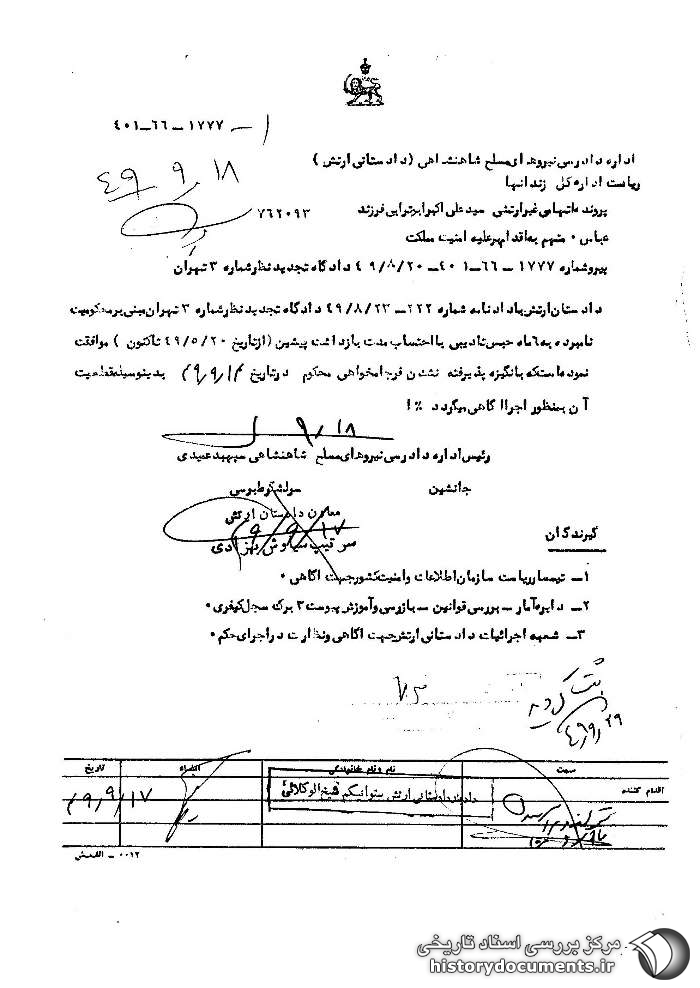 ۴۰۱-۶۶-۱۷۷۷-
۴۹/۹/۱۸
اداره دادرسی نیروهای مسلح شاهنشاهی (دادستانی ارتش)
ریاست اداره کل زندانها
پرونده متهم غیرارتشی سیدعلی اکبر ابوترابی فرزند ۷۶۲۰۹۳
عباس • متهم به اقدام بر علیه امنیت مملکت
پیرو شماره ۱۷۷۷-۶۶-۴۰۱-۴۹/۸/۲۰ دادگاه تجدید نظر شماره ۳ تهران
دادستان ارتش بادادنامه شماره ۲۲۲-۴۹/۸/۲۳ دادگاه تجدید نظر شماره ۳ تهران مبنی بر محکومیت
نامبرده به ۶ ماه حبس تادیبی با احتساب مدت بازداشت پیشین (از تاریخ ۴۹/۵/۲۰ تاکنون) موافقت
نموده است که بانگیزه پذیرفته نشدن فرجامخواهی محکوم در تاریخ ۴۹/۹/۱۴ بدینوسیله قطعیت
آن بمنظور اجرا آگاهی میگردد ٪ا
۹/۱۸
رئیس اداره دادرسی نیروهای مسلح شاهنشاهی سپهبد عمیدی
جانشین سرلشکر طبوسی
معاون دادستان ارتش
۴۹/۹/۱۷
سرتیپ سیاوش بهزادی
گیرندگان
۱- تیمسار ریاست سازمان اطلاعات و امنیت کشور جهت آگاهی •
۲- دایره آمار - بررسی قوانین - بازرسی و آموزش پیوست ۳ برگ سجل کیفری •
۳- شعبه اجرائیات دادستانی ارتش جهت آگاهی و نظارت در اجرای حکم •
ثبت گردید
۴۹/۹/۲۹
سمت نام و نام خانوادگی امضاء تاریخ
اقدام کننده دادیار دادستانی ارتش ستوانیکم شیخ الوکلائی ۴۹/۹/۱۷
۰۰۱۲ - الف ش
مرکز بررسی اسناد تاریخی
historydocuments.ir